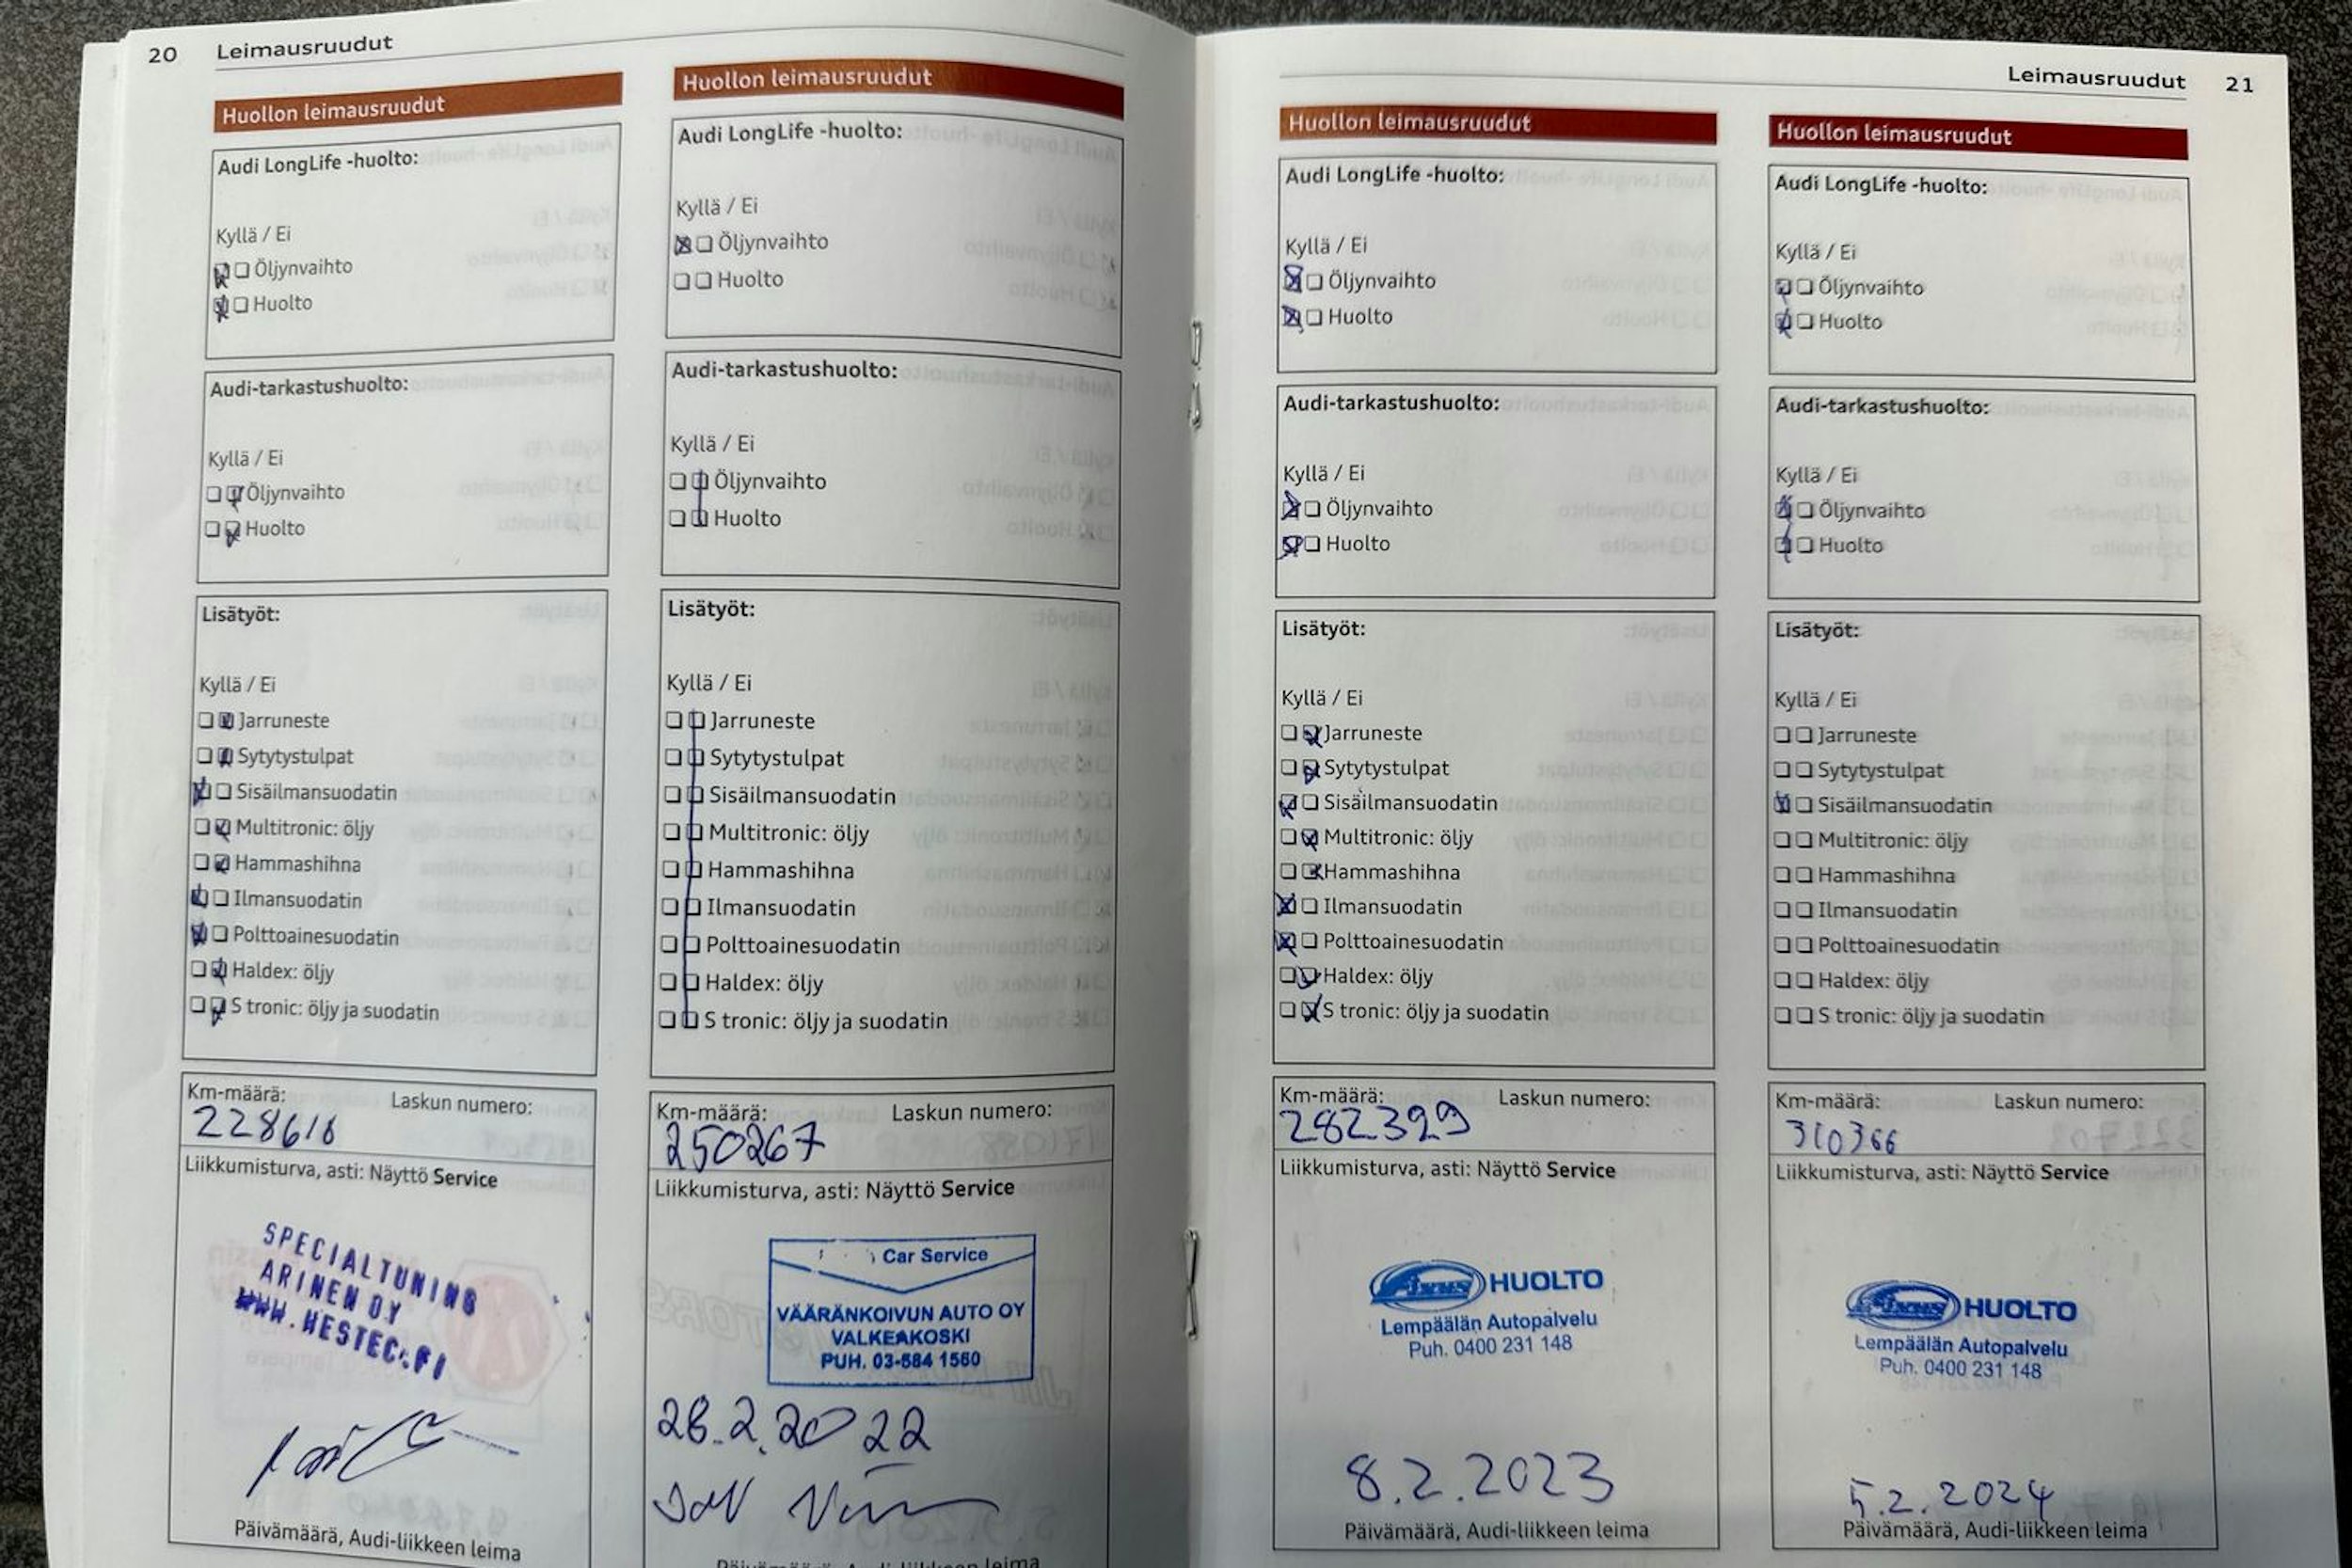 20 Leimausruudut
Huollon leimausruudut
Audi LongLife -huolto:
Kyllä / Ei
Öljynvaihto
Huolto
Audi-tarkastushuolto:
Kyllä / Ei
Öljynvaihto
Huolto
Lisätyöt:
Kyllä / Ei
Jarruneste
Sytytystulpat
Sisäilmansuodatin
Multitronic: öljy
Hammashihna
Ilmansuodatin
Polttoainesuodatin
Haldex: öljy
S tronic: öljy ja suodatin
Km-määrä: Laskun numero:
228616
Liikkumisturva, asti: Näyttö Service
SPECIALTUNING
ARINEN OY
WWW.HESTEC.FI
Päivämäärä, Audi-liikkeen leima
Huollon leimausruudut
Audi LongLife -huolto:
Kyllä / Ei
Öljynvaihto
Huolto
Audi-tarkastushuolto:
Kyllä / Ei
Öljynvaihto
Huolto
Lisätyöt:
Kyllä / Ei
Jarruneste
Sytytystulpat
Sisäilmansuodatin
Multitronic: öljy
Hammashihna
Ilmansuodatin
Polttoainesuodatin
Haldex: öljy
S tronic: öljy ja suodatin
Km-määrä: Laskun numero:
250267
Liikkumisturva, asti: Näyttö Service
Car Service
VÄÄRÄNKOIVUN AUTO OY
VALKEAKOSKI
PUH. 03-584 1560
28.2.2022
Päivämäärä, Audi-liikkeen leima
Leimausruudut 21
Huollon leimausruudut
Audi LongLife -huolto:
Kyllä / Ei
Öljynvaihto
Huolto
Audi-tarkastushuolto:
Kyllä / Ei
Öljynvaihto
Huolto
Lisätyöt:
Kyllä / Ei
Jarruneste
Sytytystulpat
Sisäilmansuodatin
Multitronic: öljy
Hammashihna
Ilmansuodatin
Polttoainesuodatin
Haldex: öljy
S tronic: öljy ja suodatin
Km-määrä: Laskun numero:
282399
Liikkumisturva, asti: Näyttö Service
HUOLTO
Lempäälän Autopalvelu
Puh. 0400 231 148
8.2.2023
Päivämäärä, Audi-liikkeen leima
Huollon leimausruudut
Audi LongLife -huolto:
Kyllä / Ei
Öljynvaihto
Huolto
Audi-tarkastushuolto:
Kyllä / Ei
Öljynvaihto
Huolto
Lisätyöt:
Kyllä / Ei
Jarruneste
Sytytystulpat
Sisäilmansuodatin
Multitronic: öljy
Hammashihna
Ilmansuodatin
Polttoainesuodatin
Haldex: öljy
S tronic: öljy ja suodatin
Km-määrä: Laskun numero:
310366
Liikkumisturva, asti: Näyttö Service
HUOLTO
Lempäälän Autopalvelu
Puh. 0400 231 148
5.2.2024
Päivämäärä, Audi-liikkeen leima